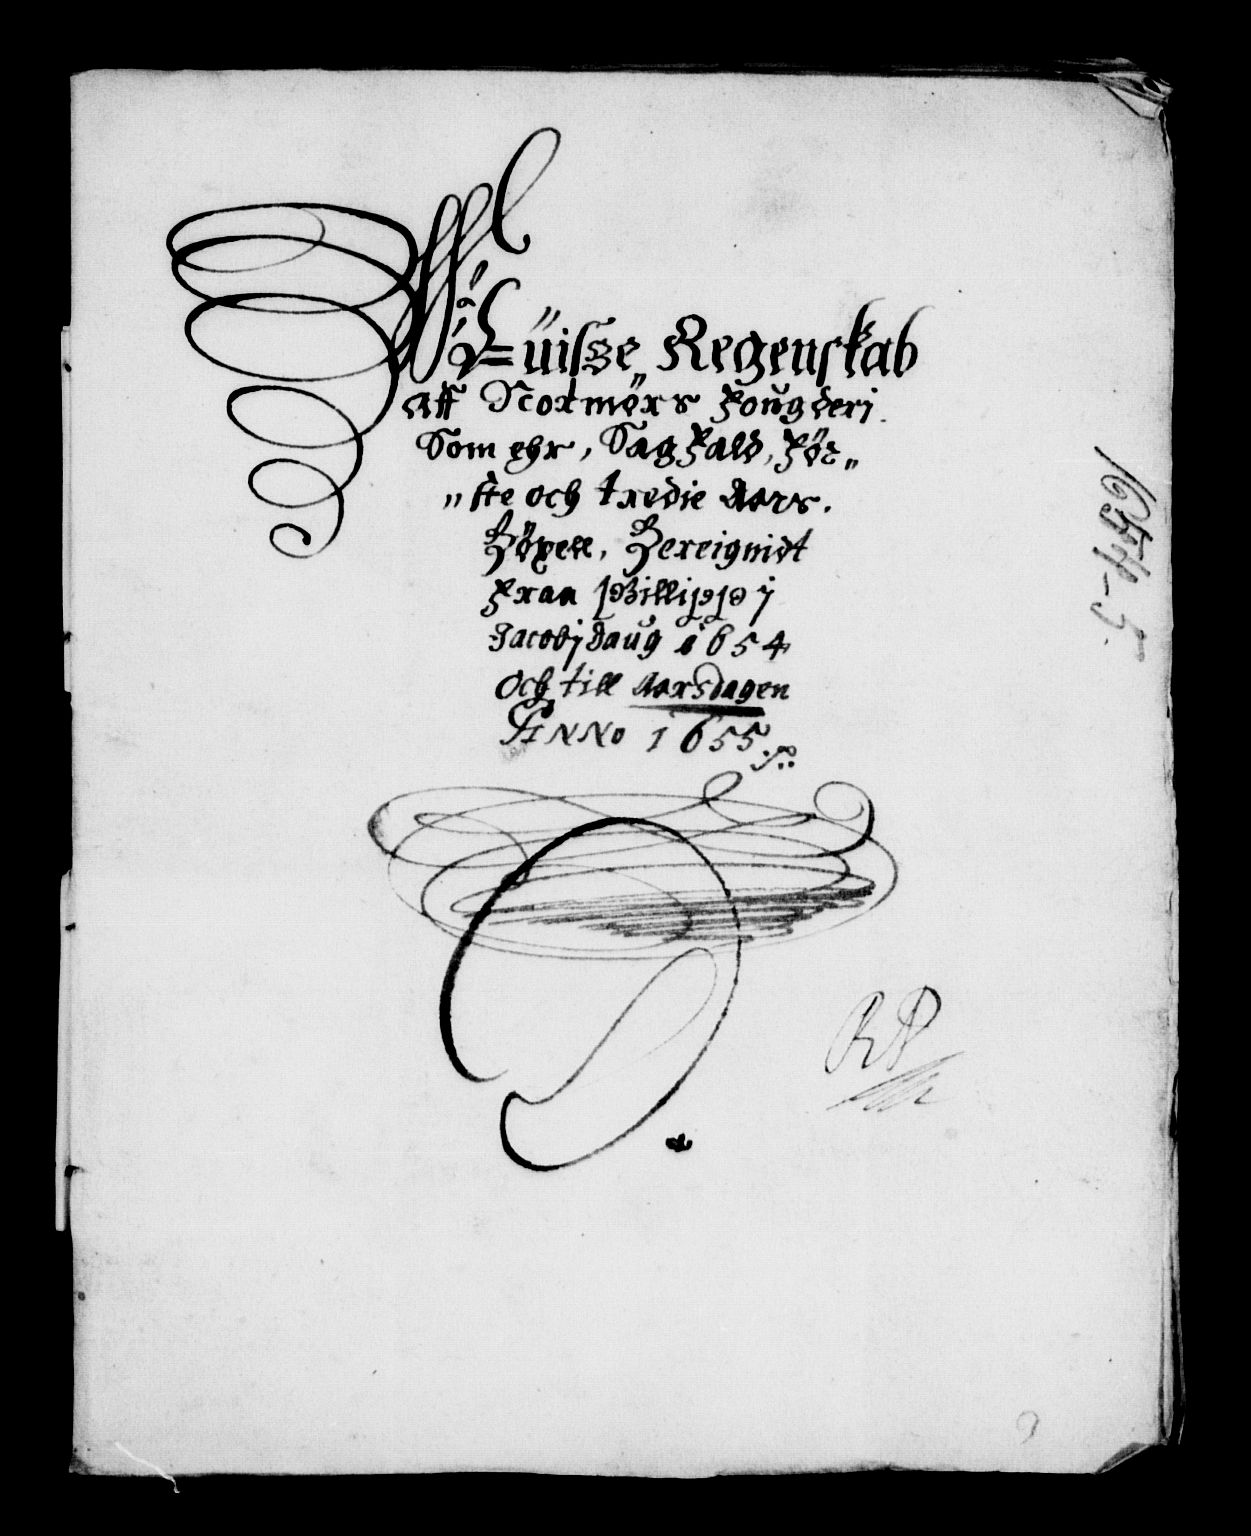 Wüisze Regenskab
Aff Nordmørs Fougderi
Som ehr, Sagfald, Før„
„ste och tredie Aars.
Bøxell, Bereignidt
Fraa Phillippi
Jacobi daug 1654
Och till Aarsdagen
ANNO 1655
RP
1654-5.